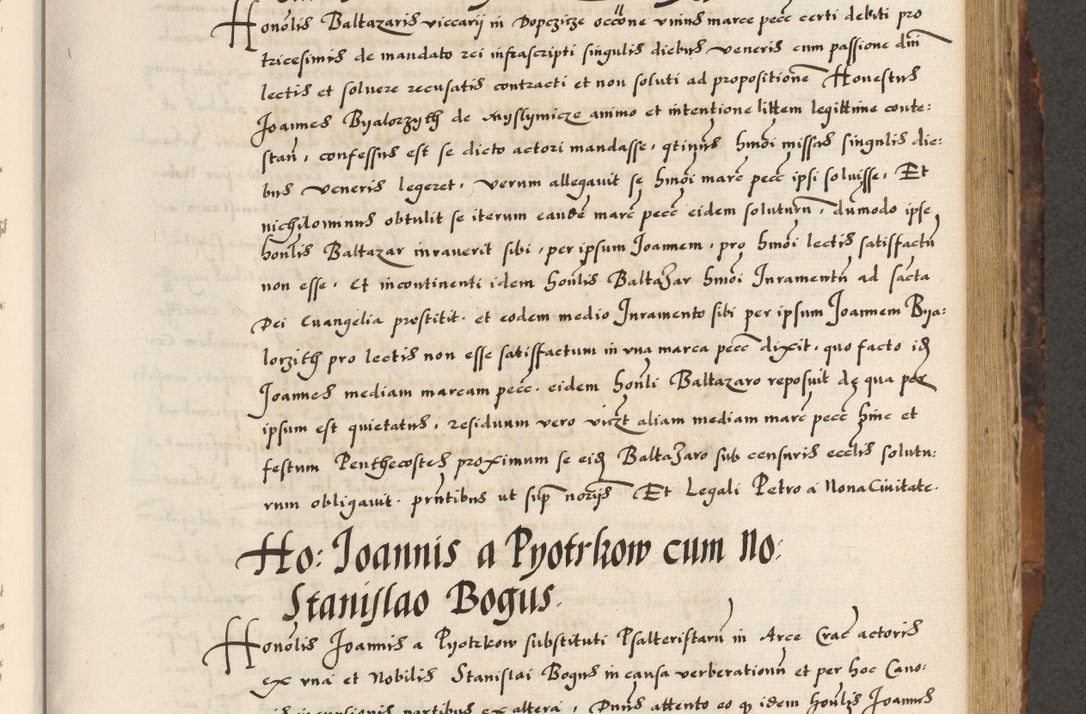 Honołis Baltazaris viccarij in Dopczicze occõne vnius marce pecc certi debiti pro
tricesimis de mandato rei infrascripti singulis diebus veneris cum passione dm̄
lectis et soluere recusatis contracti et non soluti ad propositionē Honestus
Joannes Byalorzyth de Myslymicze animo et intentione littem legittime conte:
stan̄, confessus est se dicto actori mandasse, qtinus hmōi missas singulis die:
bus veneris legeret, verum allegauit se hmōi marc̄ pecc̄ ipsi soluisse, Et
nichilominus obtulit se iterum eandē marc̄ pecc̄ eidem soluturū, dumodo ipse
honłis Baltazar iurauerit sibi, per ipsum Joannem, pro hmōi lectis satisfactū
non esse, Et incontinenti idem honłis Baltazar hmōi Juramentū ad sacta
Dei Euangelia prestitit, et eodem medio Juramento sibi per ipsum Joannem Bya:
lorzith pro lectis non esse satisfactum in vna marca pecc̄ dixit, quo facto id
Joannes mediam marcam pecc̄, eidem honłi Baltazaro reposuit de qua per
ipsum est quietatus, residuum vero viczt aliam mediam marc̄ pecc̄ hinc et
festum Penthecostes proximum se eid Baltazaro sub censuris ecclis solutu:
rum obligauit, pr̄ntibus ut sup̄ norijs Et Legali Petro a Nona Ciuitate.
Ho: Joannis a Pyotrkow cum No:
Stanislao Bogus.
Honołis Joannis a Pyotrkow substituti Psalteristarū in Arce Crac̄ actoris
ex vna et Nobilis Stanislai Bogus in causa verberationū et per hoc Cano:
partibus ex altera, Dnus attento eo q idem honłis Joannes